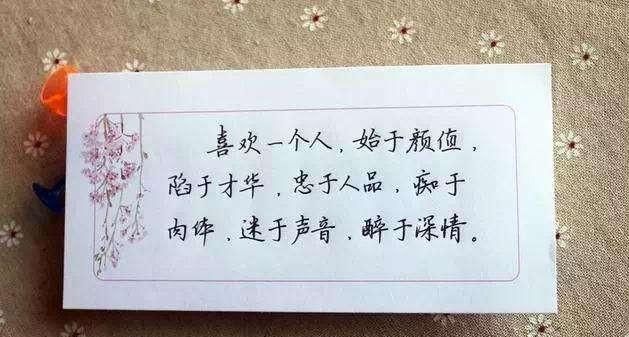 喜欢一个人、始于颜值，
陷于才华、忠于人品、痴于
肉体、迷于声音、醉于深情。